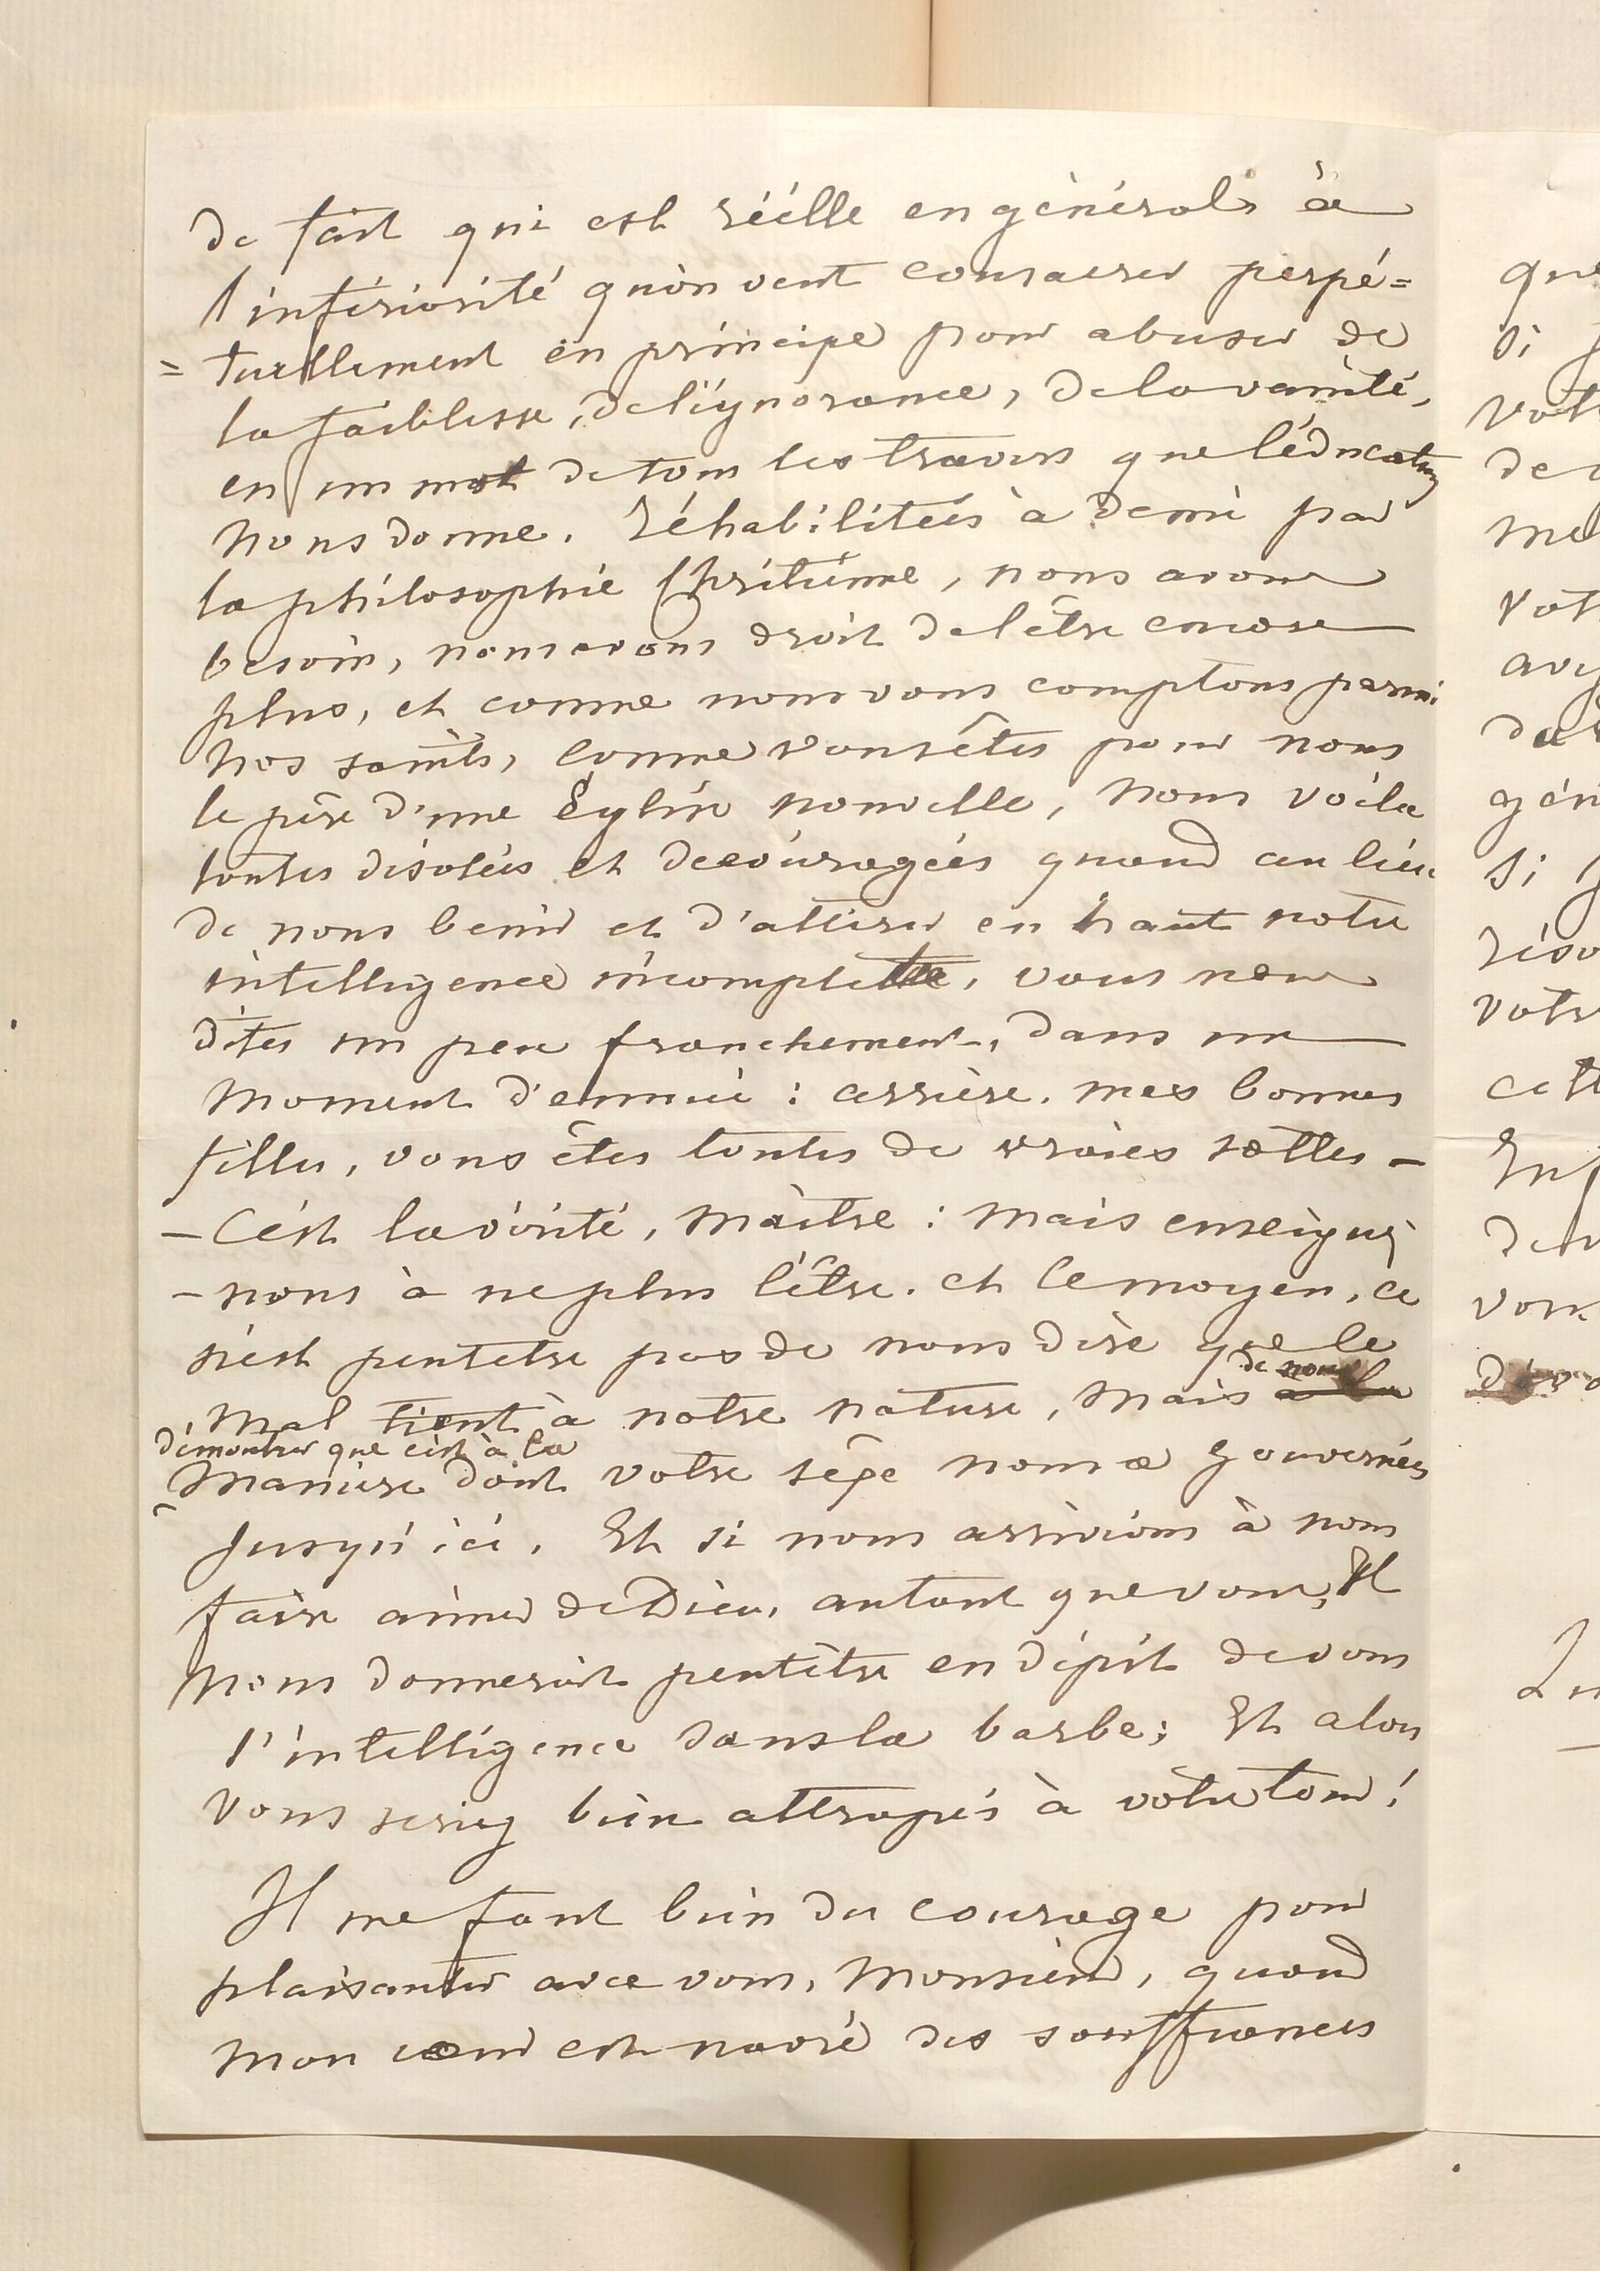 de fait qui est réelle en général, à
l'infériorité qu'on veut consacrer perpé=
=tuellement en principe pour abuser de
la faiblesse, de l'ignorance, de la vanité,
en un mot de tous les travers que l'éducation
nous donne. Réhabilitées à demi par
la philosophie Chrétienne, nous avons
besoin, nous avons droit de l'être encore
plus, et comme nous vous comptons parmi
nos saints, comme vous êtes pour nous
le père d'une Eglise nouvelle, nous voila
toutes désolées et découragées quand au lieu
de nous benir et d'attirer en haut notre
intelligence incomplette, vous nous
dites un peu franchement, dans un
moment d'ennui : arrière, mes bonnes
filles, vous êtes toutes de vraies sottes –
– C'est la vérité, Maître : Mais enseignez
– nous à ne plus l'être. et le moyen, ce
n'est peutetre pas de nous dire que le
de nous
mal tient à notre nature, mais à la
démontrer que c'est à la
Manière dont votre sexe nous a gouvernées
jusqu'ici. Et si nous arrivions à nous
faire aimer de Dieu, autant que vous, Il
nous donnerait peutêtre en dépit de vous
l'intelligence sans la barbe ; Et alors
vous seriez bien attrapés à votre tour !
Il me faut bien du courage pour
plaisanter avec vous, Monsieur, quand
mon cœur est navré des souffrances
que
si
me
gén
si
votr